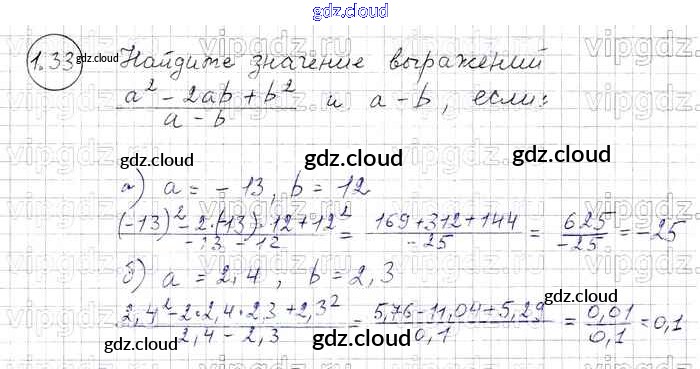 gdz.cloud
1.33 gdz.cloud Найдите значение выражений
(a² - 2ab + b²)/(a - b) и a - b, если:
gdz.cloud gdz.cloud
а) a = - 13, b = 12
((-13)² - 2·(-13)·12 + 12²)/(-13 - 12) = (169 + 312 + 144)/(-25) = 625/(-25) = -25
б) a = 2,4, b = 2,3
(2,4² - 2·2,4·2,3 + 2,3²)/(2,4 - 2,3) = (5,76 - 11,04 + 5,29)/(0,1) = 0,01/0,1 = 0,1
gdz.cloud gdz.cloud
gdz.cloud